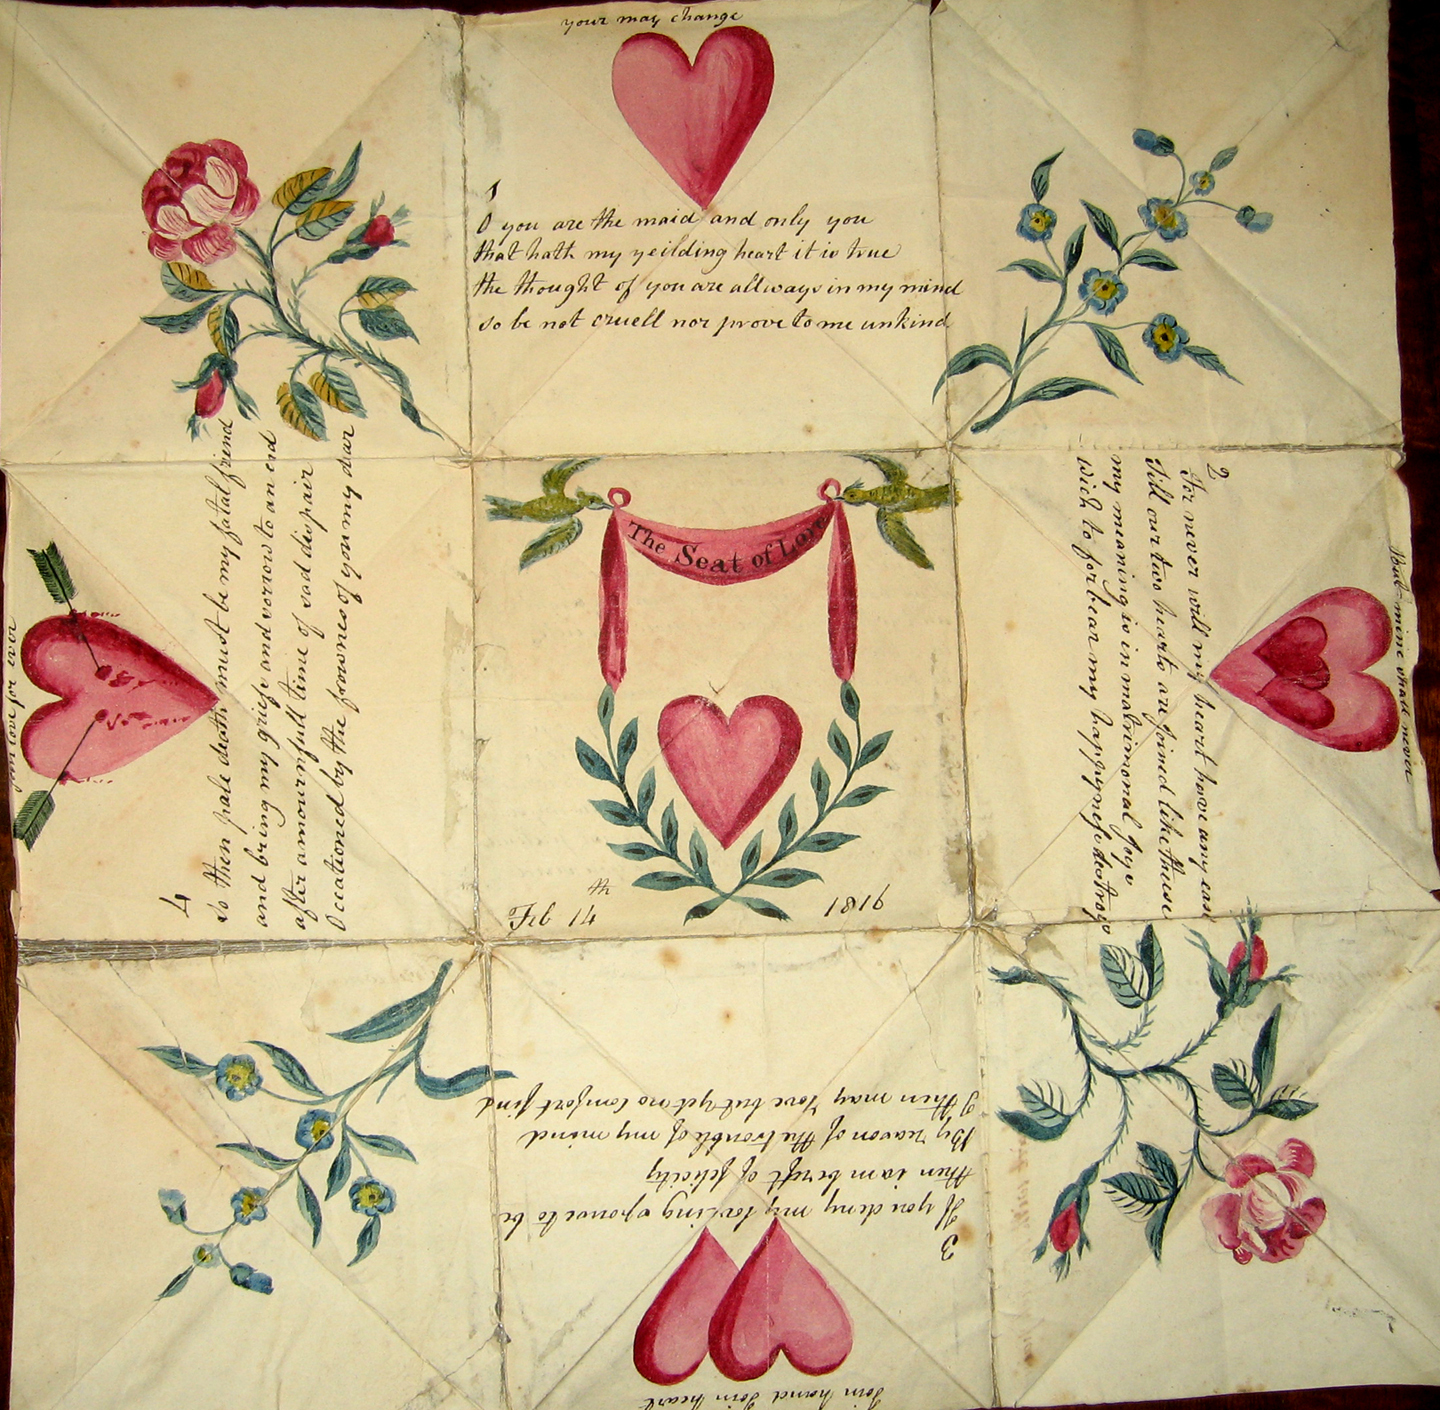 your may change
1
O you are the maid and only you
that hath my yeilding heart it is true
the thought of you are allways in my mind
so be not cruell nor prove to me unkind
But mine shall never
2
For never will my heart have any ease
Till our two hearts are joined like these
my meaning is in matrimonal Joys
wich to forbear my happyness destroys
Join hand Join heart
3
If you deny my loving spouse to be
then i am bereft of felicity
By reason of the trouble of my mind
I then may Love but yet no Comfort find
love for ever
4
so then pale death must be my fatal friend
and bring my griefs and sorrow to an end
after a mournfull time of sad dispair
Occationed by the frownes of you my dear
The Seat of Love
Feb 14th 1816